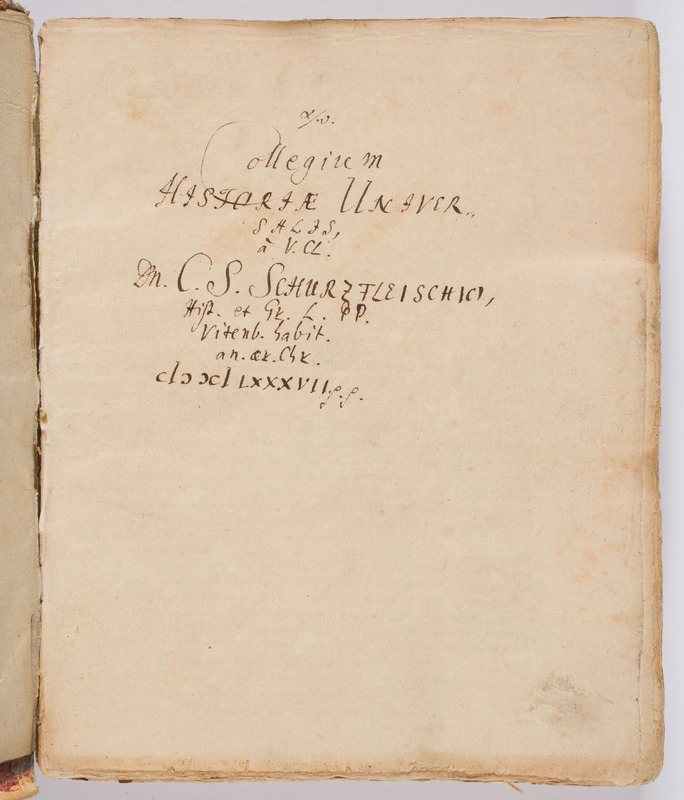 α/ω.
Collegium
HISTORIÆ UNIVER„
SALIS,
à V. CL.
Dn. C. S. SCHURZFLEISCHIO,
Hist. et Gr. L. PP.
Vitenb. habit.
an. ær. Chr.
cIɔ ɔcI LXXXVII